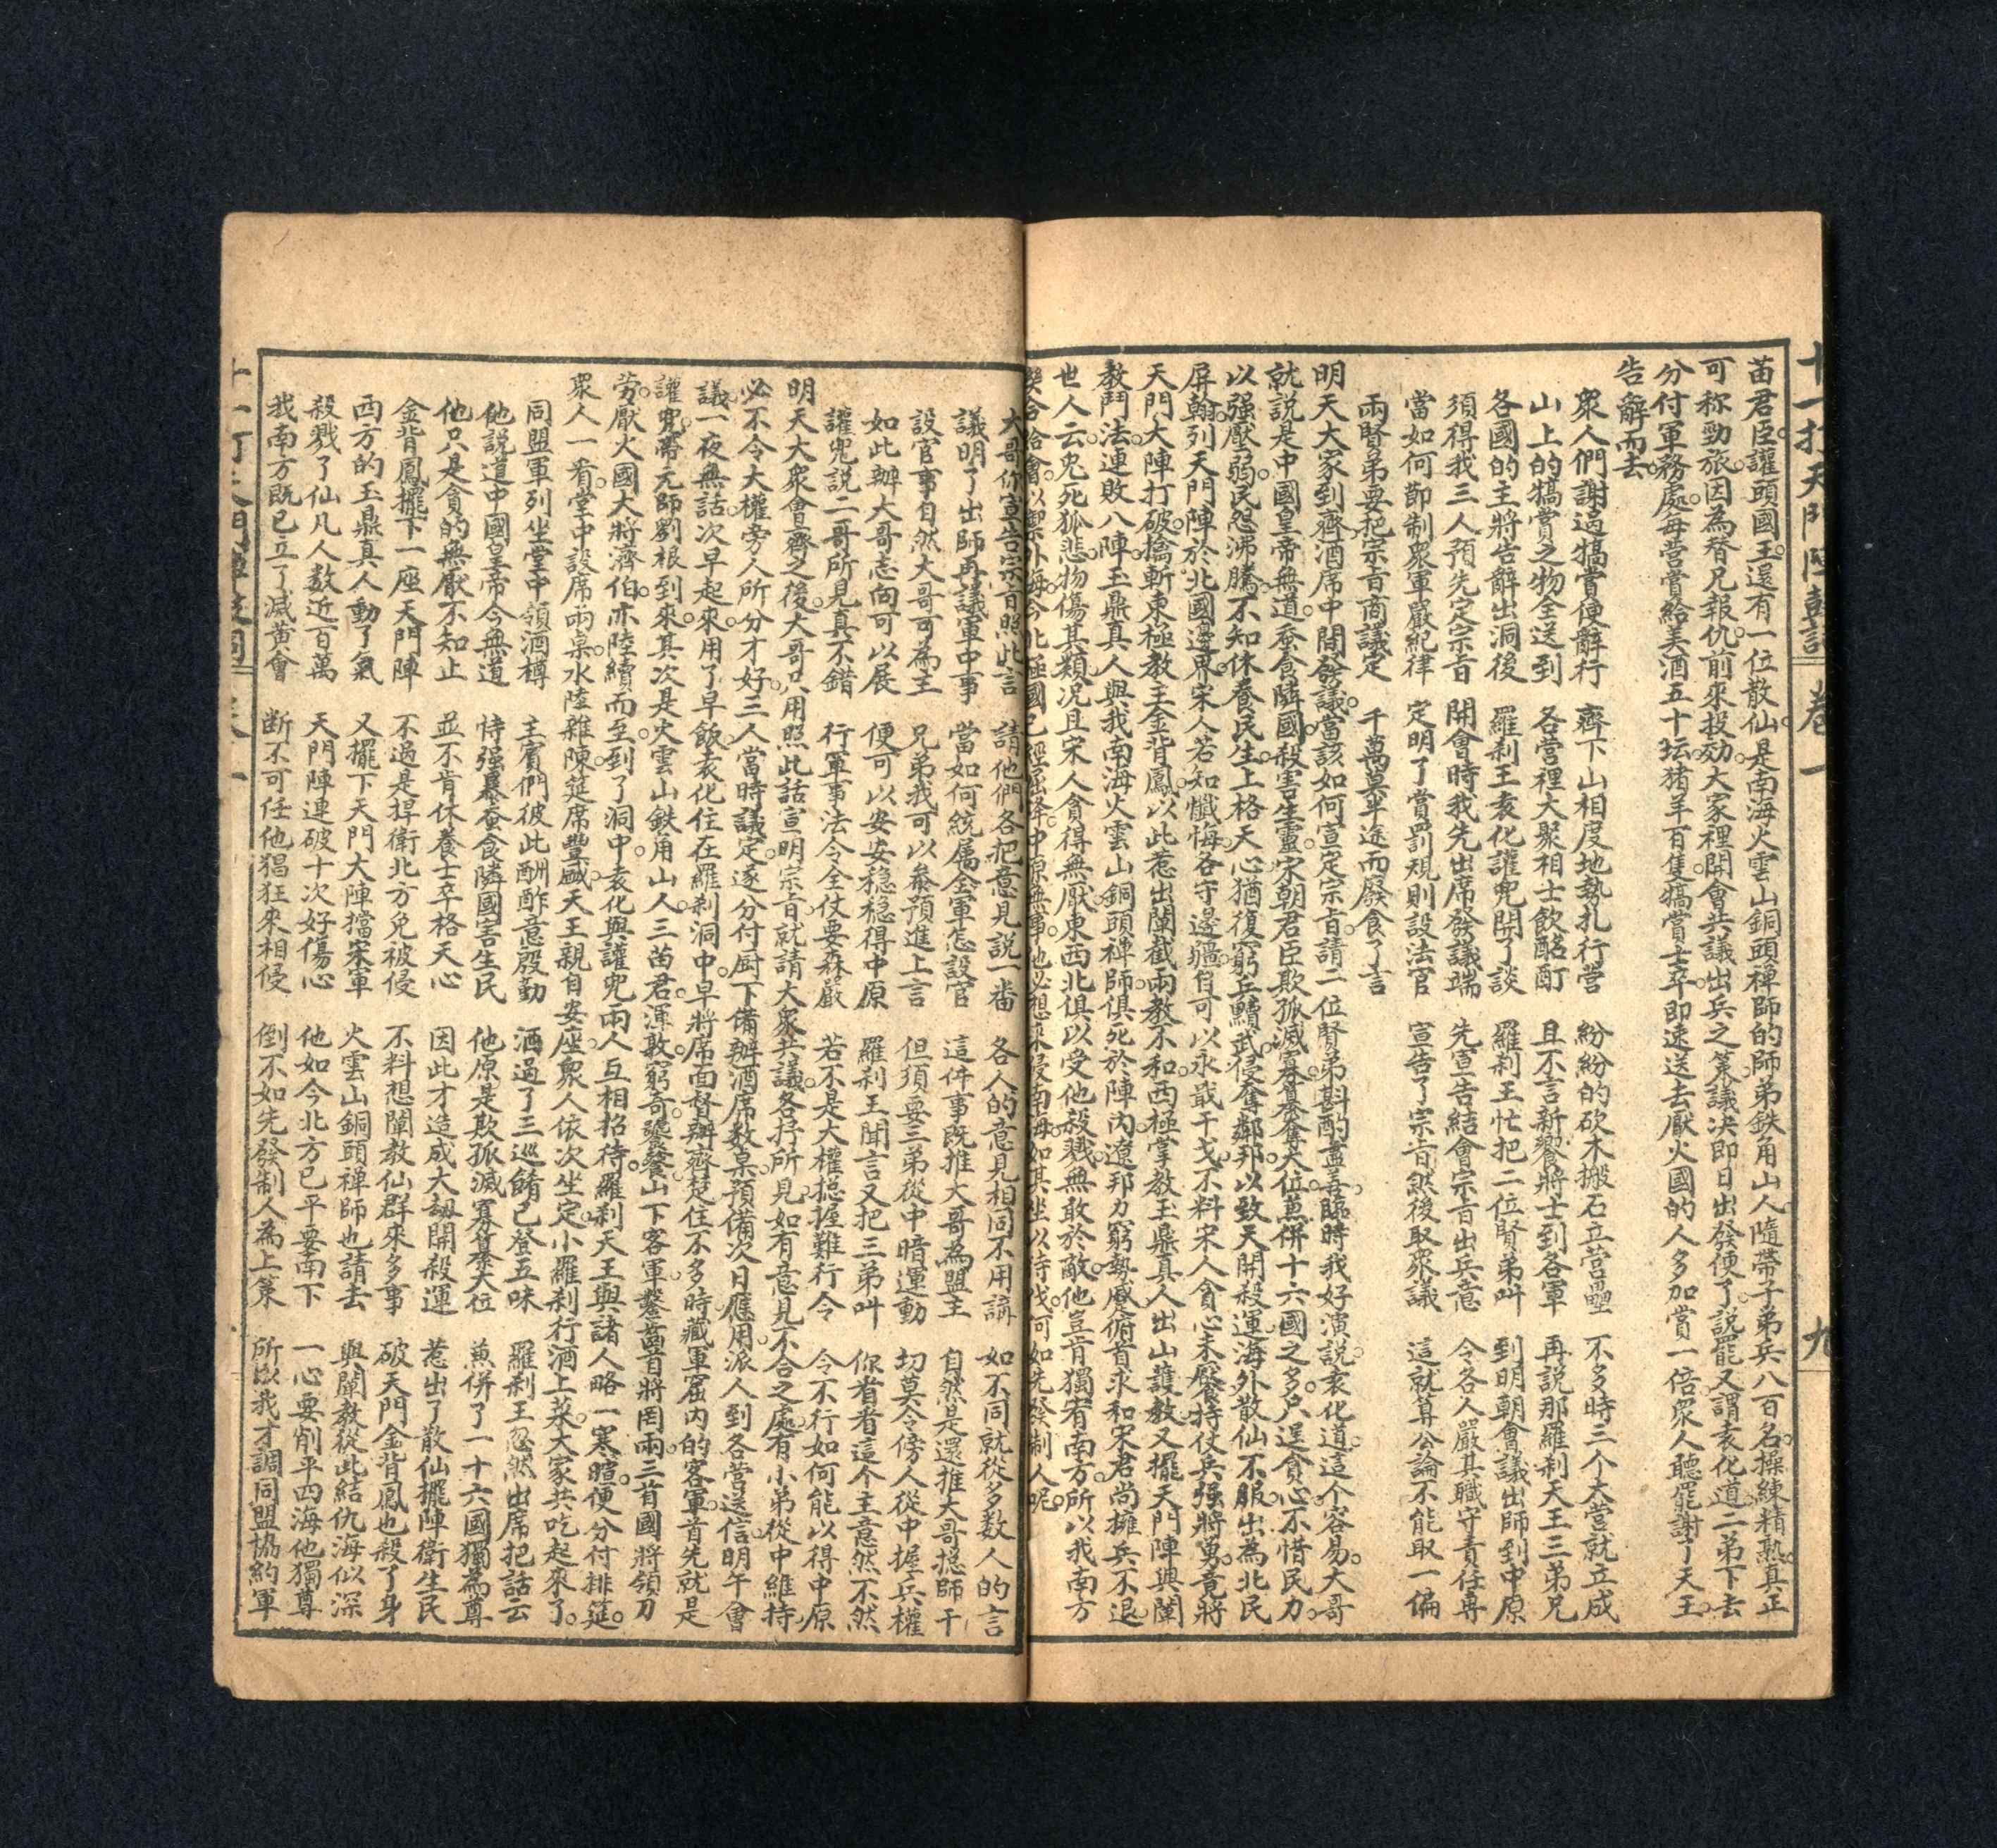 十一打天門陣鼓詞 卷一 九
苗君臣讙頭國王還有一位散仙是南海火雲山銅頭禅師的師弟鉄角山人隨帶子弟兵八百名操練精熟真正
可称勁旅因為替兄報仇前來投効大家裡開會共議出兵之策議决即日出發便了説罷又謂亥化道二弟下去
分付軍務處每营賞給美酒五十坛猪羊百隻犒賞士卒即速送去厭火國的人多加賞一倍衆人聽罷謝了天王
告辭而去
衆人們謝過犒賞便辭行 齊下山相度地勢扎行营 紛紛的砍木搬石立营壘 不多時三个大营就立成
山上的犒賞之物全送到 各营裡大衆相士飲酩酊 且不言新饗將士到各軍 再説那羅刹天王三弟兄
各國的主將告辭出洞後 羅刹王亥化讙兜閗了談 羅刹王忙把二位賢弟叫 到明朝會議出師到中原
須得我三人預先定宗旨 開會時我先出席發議端 先宣告結會宗旨出兵意 今各人嚴其職守責任專
當如何節制衆軍嚴紀律 定明了賞罰規則設法官 宣告了宗旨然後取衆議 這就算公論不能取一偏
兩賢弟要把宗旨商議定 千萬莫半途而廢食了言
明天大家到齊酒席中間發議當該如何宣定宗旨請二位賢弟斟酌盡善臨時我好演説亥化道這个容易大哥
就説是中國皇帝無道蚕食隣國殺害生靈宋朝君臣欺孤滅寡篡奪大位蕙併十六國之多只逞貪心不惜民力
以强壓弱民怨沸騰不知休養民生上格天心猶復窮兵黷武侵奪鄰邦以致天開殺運海外散仙不服出為北民
屏翰列天門陣於北國邊界宋人若知懺悔各守邊疆自可以永戢干戈不料宋人貪心未厭特仗兵强將勇竟將
天門大陣打破擒斬東極教主金背鳳以此惹出闡截兩教不和西極掌教玉鼎真人出山護教又擺天門陣與闡
教鬥法連敗八陣玉鼎真人與我南海火雲山銅頭禅師俱死於陣内遼邦力窮勢蹙俯首求和宋君尚擁兵不退
世人云兎死狐悲物傷其類况且宋人貪得無厭東西北俱以受他殺戮無敢於敵他豈肯獨宥南方所以我南方
以禦外侮今北極國已經屈降中原無事他必想來侵南海如其坐以待伐何如先發制人呢
大哥你宣告宗旨照此言 請他們各把意見説一番 各人的意見相同不用諭 如不同就從多数人的言
議明了出師再議軍中事 當如何統属全軍怎設官 這件事既推大哥為盟主 自然是還推大哥摠師干
設官事自然大哥可為主 兄弟我可以叅預進上言 但須要三弟從中暗運動 切莫令傍人從中握兵權
如此辦大哥志向可以展 便可以安安穏穏得中原 羅刹王聞言又把三弟叫 你看看這个主意然不然
讙兜説二哥所見真不錯 行軍事法令全仗要森嚴 若不是大權摠握難行令 今不行如何能以得中原
明天大衆會齊之後大哥只用照此話宣明宗旨就請大衆共議各抒所見如有意見不合之處有小弟從中維持
必不令大權旁人所分才好三人當時議定遂分付厨下備辦酒席数桌預備次日應用派人到各营送信明午會
議一夜無話次早起來用了早飯亥化住在羅刹洞中早將席面督辦齊楚住不多時藏軍窟内的客軍首先就是
讙兜帶元師劉根到來其次是火雲山鉄角山人三苗君渾敦窮奇饕餮山下客軍鑿齒首將罔兩三首國將領刀
劳厭火國大將濟伯亦陸續而至到了洞中亥化與讙兜兩人互相招待羅刹天王與諸人略一寒暄便分付排筵
衆人一看堂中設席兩桌水陸雜陳筵席豐盛天王親自安座衆人依次坐定小羅刹行酒上菜大家共吃起來了
同盟軍列坐堂中領酒樽 主賓們彼此酬酢意殷勤 酒過了三巡餚已登五味 羅刹王忽然出席把話云
他説道中國皇帝今無道 恃强暴蚕食隣國害生民 他原是欺孤滅寡篡大位 蕙併了一十六國獨為尊
他只是貪的無厭不知止 並不肯休養士卒格天心 因此才造成大刼開殺運 惹出了散仙擺陣衛生民
金背鳳擺下一座天門陣 不過是捍衛北方免被侵 不料想闡教仙群來多事 破天門金背鳳也殺了身
西方的玉鼎真人動了氣 又擺下天門大陣擋宋軍 火雲山銅頭禅師也請去 與闡教從此結仇海似深
殺戮了仙凡人数近百萬 天門陣連破十次好傷心 他如今北方已平要南下 一心要削平四海他獨尊
我南方既已立了滅黄會 断不可任他猖狂來相侵 倒不如先發制人為上策 所以我才調同盟協約軍